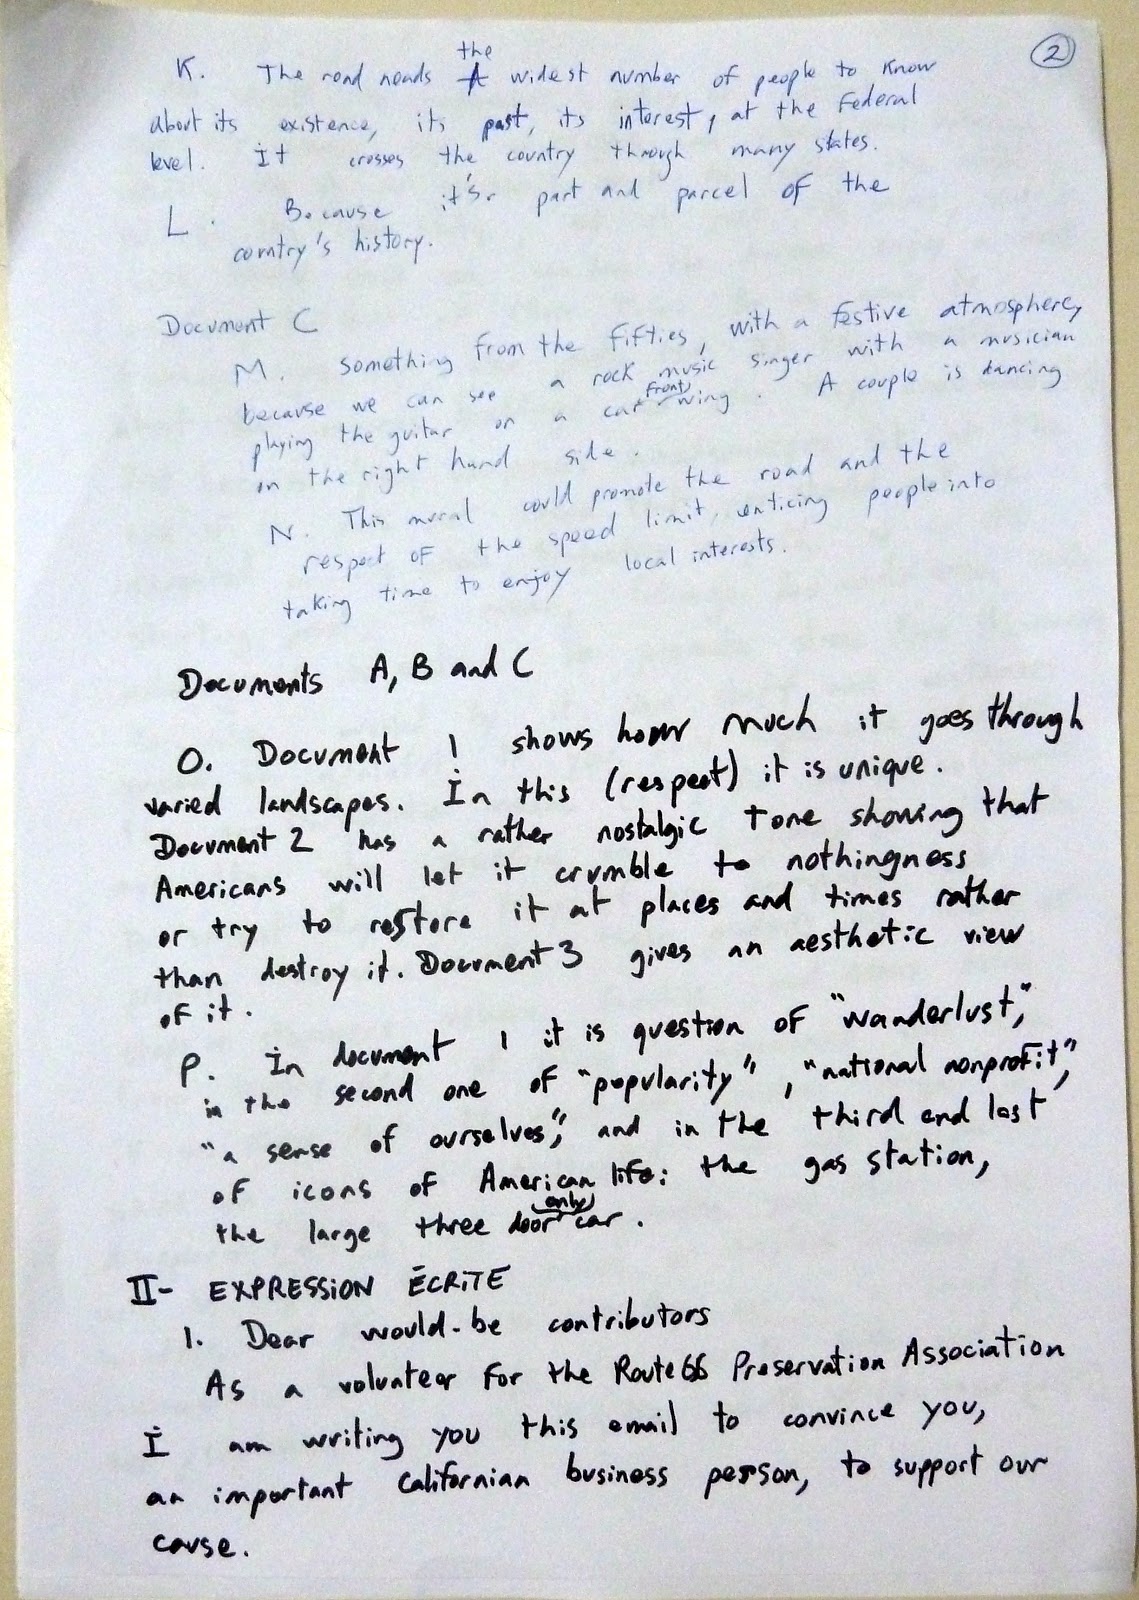 2
K. The road needs the widest number of people to know
about its existence, its past, its interest, at the Federal
level. It crosses the country through many states.
L. Because it's part and parcel of the
country's history.
Document C
M. Something from the fifties, with a festive atmosphere,
because we can see a rock music singer with a musician
playing the guitar on a car front wing. A couple is dancing
on the right hand side.
N. This mural could promote the road and the
respect of the speed limit, enticing people into
taking time to enjoy local interests.
Documents A, B and C
O. Document 1 shows how much it goes through
varied landscapes. In this (respect) it is unique.
Document 2 has a rather nostalgic tone showing that
Americans will let it crumble to nothingness
or try to restore it at places and times rather
than destroy it. Document 3 gives an aesthetic view
of it.
P. In document 1 it is question of "wanderlust",
in the second one of "popularity", "national nonprofit",
"a sense of ourselves", and in the third and last
of icons of American life: the gas station,
the large three door only car.
II- EXPRESSION ÉCRITE
1. Dear would-be contributors
As a volunteer for the Route 66 Preservation Association
I am writing you this email to convince you,
an important Californian business person, to support our
cause.